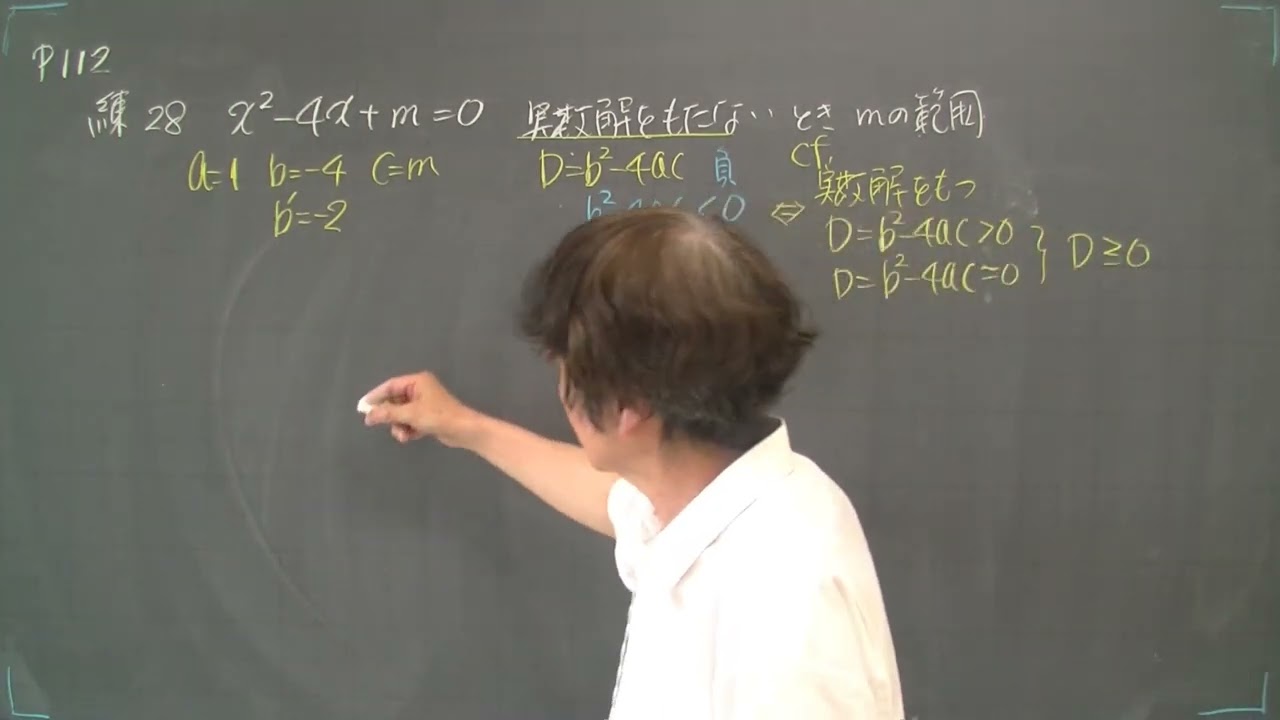 P112
練28 x²-4x+m=0 実数解をもたないとき mの範囲
a=1 b=-4 c=m
b'=-2
D=b²-4ac 負
b²-4ac<0
cf.
⇔ 実数解をもつ
D=b²-4ac>0
D=b²-4ac=0
} D≧0